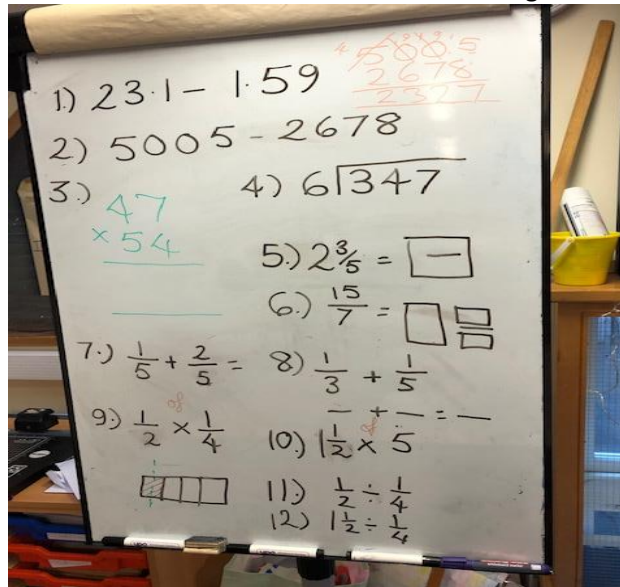 1.) 23·1 - 1·59
4 9 9 1
5005
2678
2327
2) 5005 - 2678
3.) 47
× 54
4) 6)347
5.) 2 3/5 = —
6.) 15/7 =
7.) 1/5 + 2/5 =
8) 1/3 + 1/5
— + — = —
9.) 1/2 × 1/4
of
10.) 1 1/2 × 5
of
11.) 1/2 ÷ 1/4
12) 1 1/2 ÷ 1/4